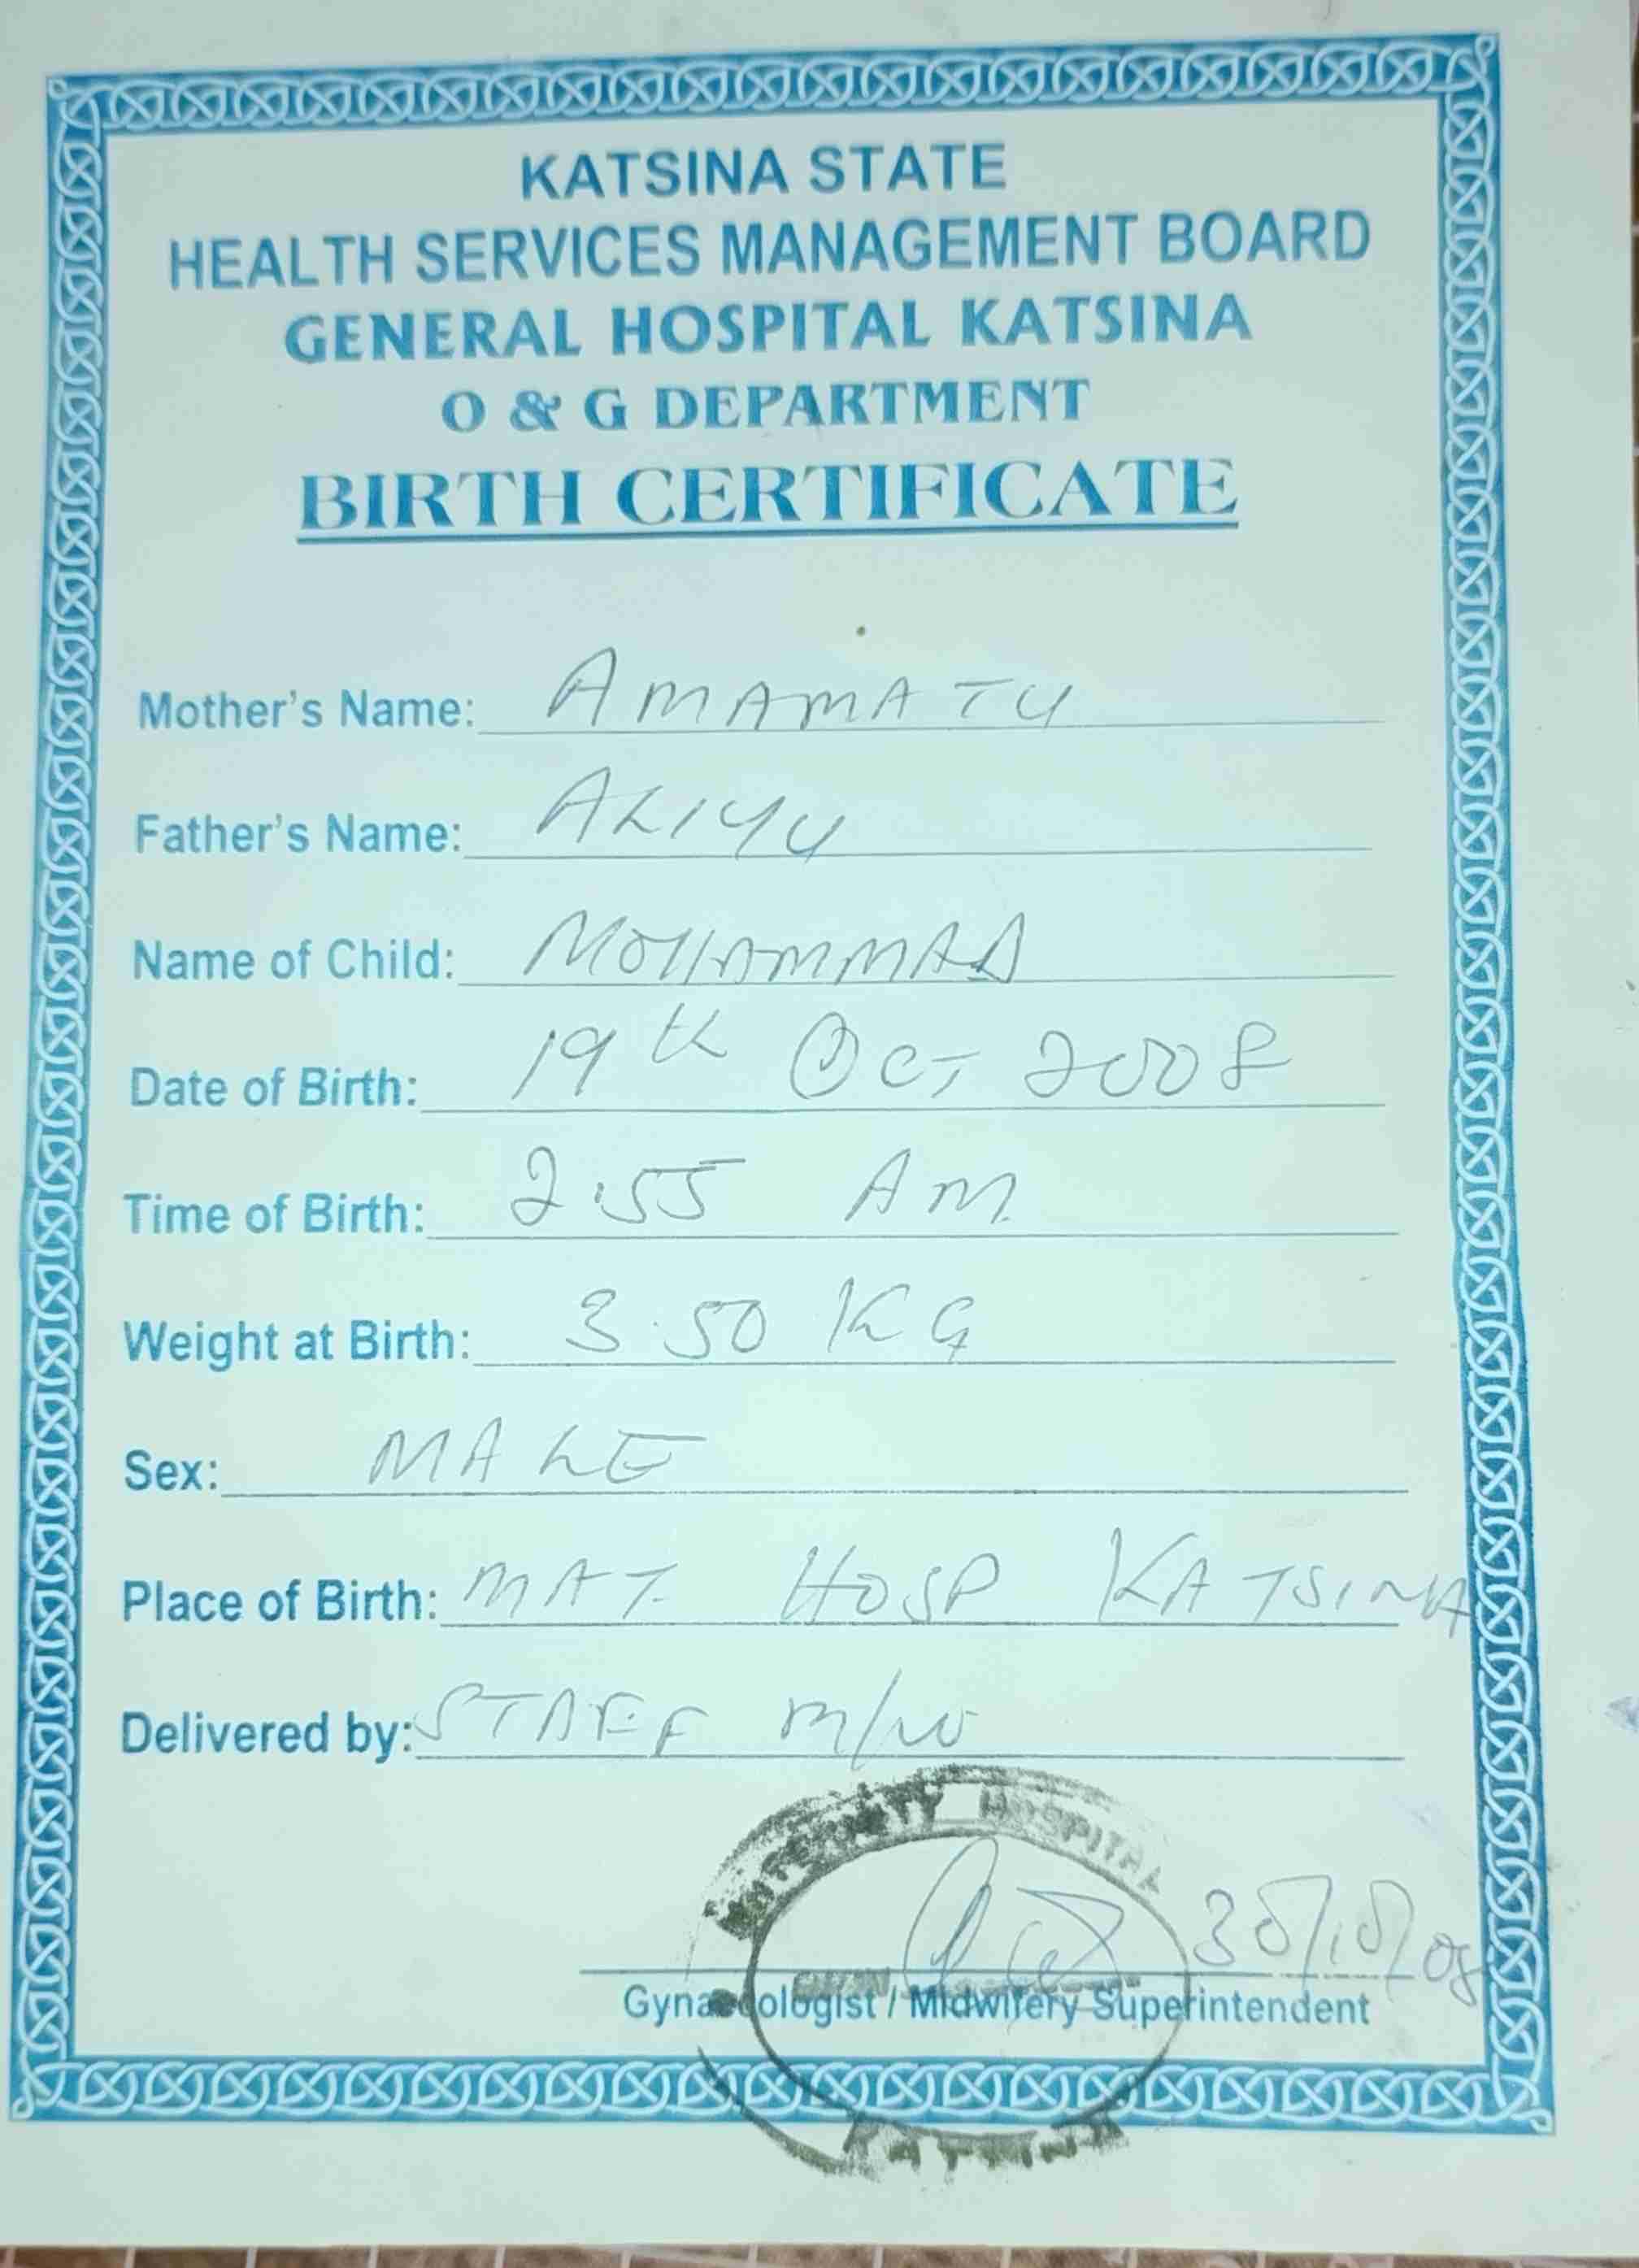 KATSINA STATE
HEALTH SERVICES MANAGEMENT BOARD
GENERAL HOSPITAL KATSINA
O & G DEPARTMENT
BIRTH CERTIFICATE
Mother's Name: AMAMATU
Father's Name: ALIYU
Name of Child: MOHAMMAD
Date of Birth: 19th Oct 2008
Time of Birth: 2.55 AM
Weight at Birth: 3.50 KG
Sex: MALE
Place of Birth: MAT. HOSP KATSINA
Delivered by: STAFF M/W
HOSPITAL
30/10/08
Gynaecologist / Midwifery Superintendent
KATSINA